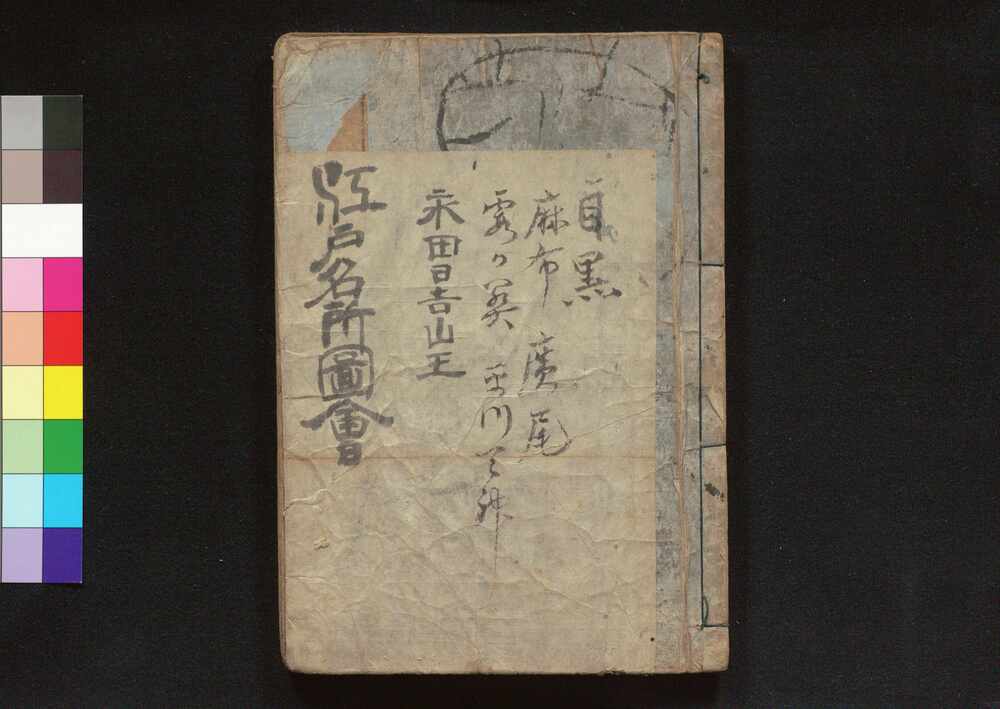 目黒
麻布 廣尾
霞ヶ関 平川天神
永田日吉山王
江戸名所圖會